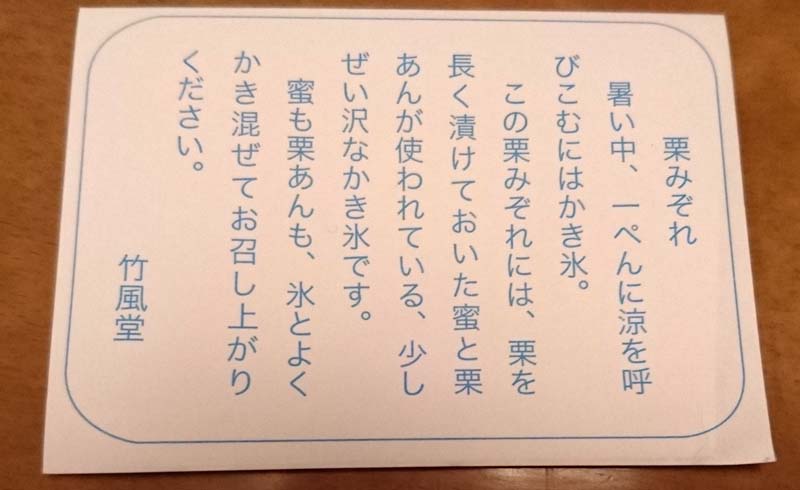 栗みぞれ
暑い中、一ぺんに涼を呼
びこむにはかき氷。
この栗みぞれには、栗を
長く漬けておいた蜜と栗
あんが使われている、少し
ぜい沢なかき氷です。
蜜も栗あんも、氷とよく
かき混ぜてお召し上がり
ください。
竹風堂